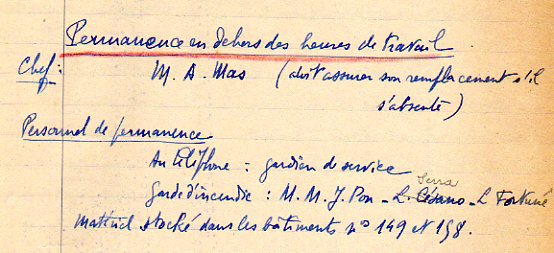 Permanence en dehors des heures de travail
Chef : M. A. Mas (doit assurer son remplacement s'il
s'absente)
Personnel de permanence
Au téléphone : gardien de service
Serra
Garde d'incendie : M. M. J. Pon - L. Césano - L Fortuné
matériel stocké dans les bâtiments nos 149 et 198.